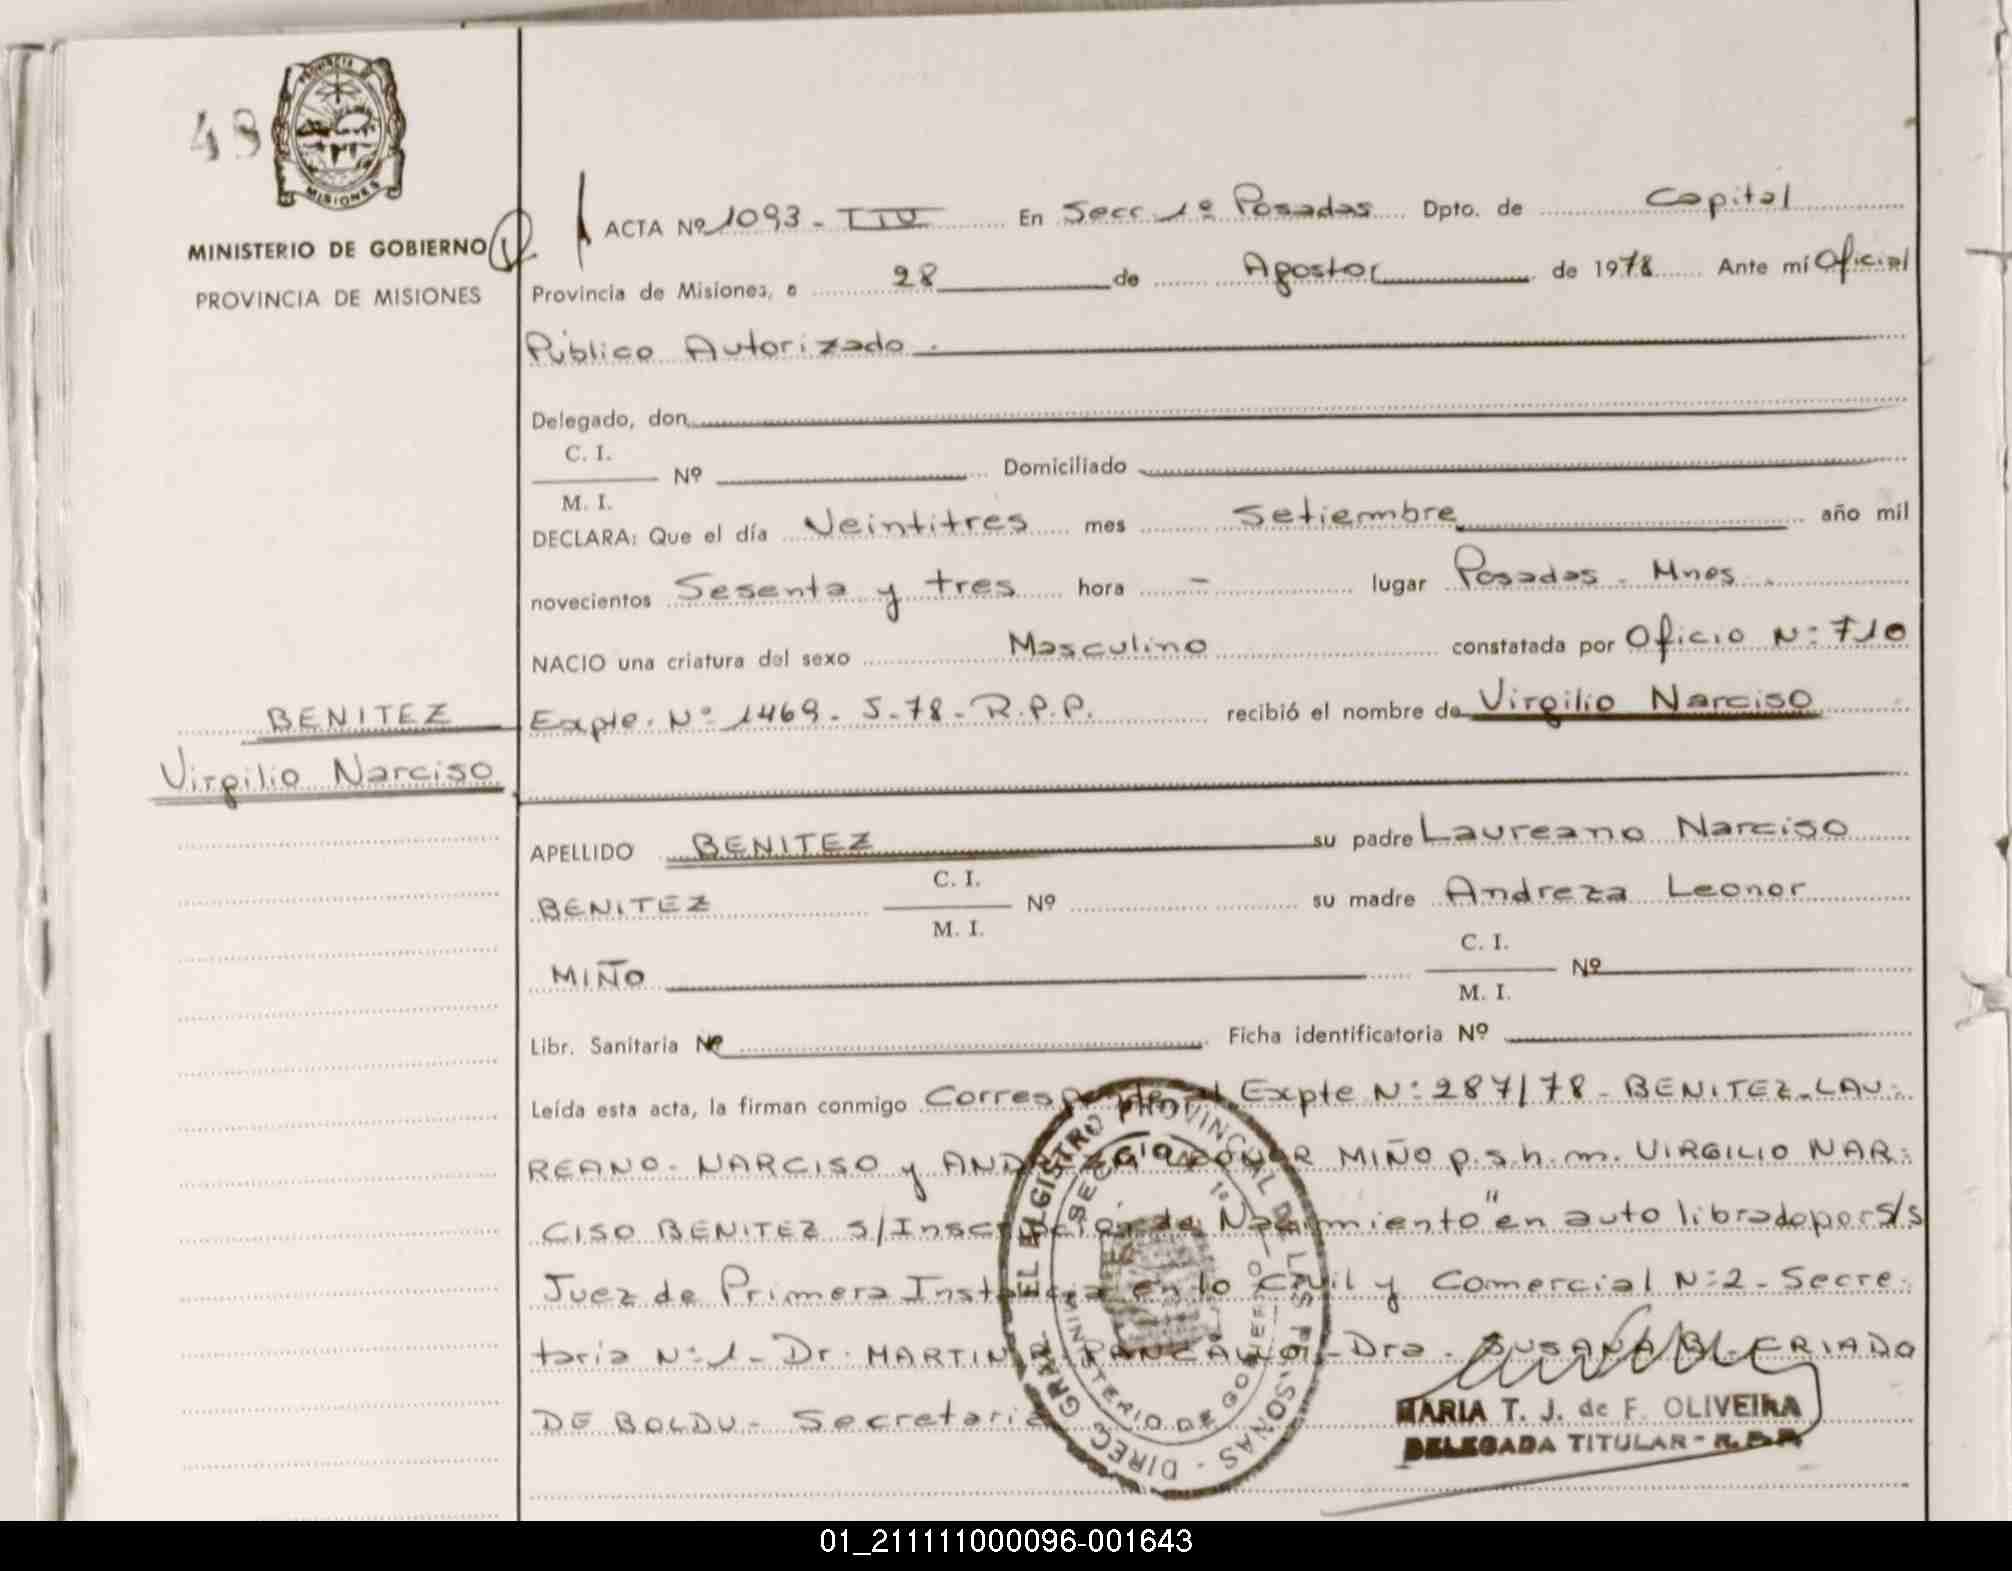 48
PROVINCIA DE
MISIONES
MINISTERIO DE GOBIERNO
PROVINCIA DE MISIONES
ACTA Nº 1093 - TIV En Secc 1º Posadas Dpto. de Capital
Provincia de Misiones, a 28 de Agosto de 1978 Ante mi Oficial
Público Autorizado.
Delegado, don
C. I.
Nº Domiciliado
M. I.
DECLARA: Que el día Veintitres mes Setiembre año mil
novecientos Sesenta y tres hora - lugar Posadas - Mnes.
NACIO una criatura del sexo Masculino constatada por Oficio N: 710
BENITEZ
Expte. Nº 1469- J-78- R.P.P. recibió el nombre de Virgilio Narciso
Virgilio Narciso
APELLIDO BENITEZ su padre Laureano Narciso
C. I.
BENITEZ Nº su madre Andreza Leonor
M. I.
C. I.
MIÑO Nº
M. I.
Libr. Sanitaria Nº Ficha identificatoria Nº
Leída esta acta, la firman conmigo Corresponde al Expte N: 287/78 - BENITEZ - LAU-
REANO - NARCISO y ANDREZA LEONOR MIÑO p.s.h.m. VIRGILIO NAR-
CISO BENITEZ S/Inscripción de Nacimiento" en auto librado por S/S
Juez de Primera Instancia en lo Civil y Comercial N: 2 - Secre-
taria N: 1 - Dr. MARTIN - Dra. SUSANA B. CRIADO
DE BOLDU - Secretaria
DIREC. GRAL. EL REGISTRO PROVINCIAL DE LAS PERSONAS
SECCIÓN 1ª
MINISTERIO DE GOBIERNO
MARIA T. J. de F. OLIVEIRA
DELEGADA TITULAR - R.P.P.
01_211111000096-001643